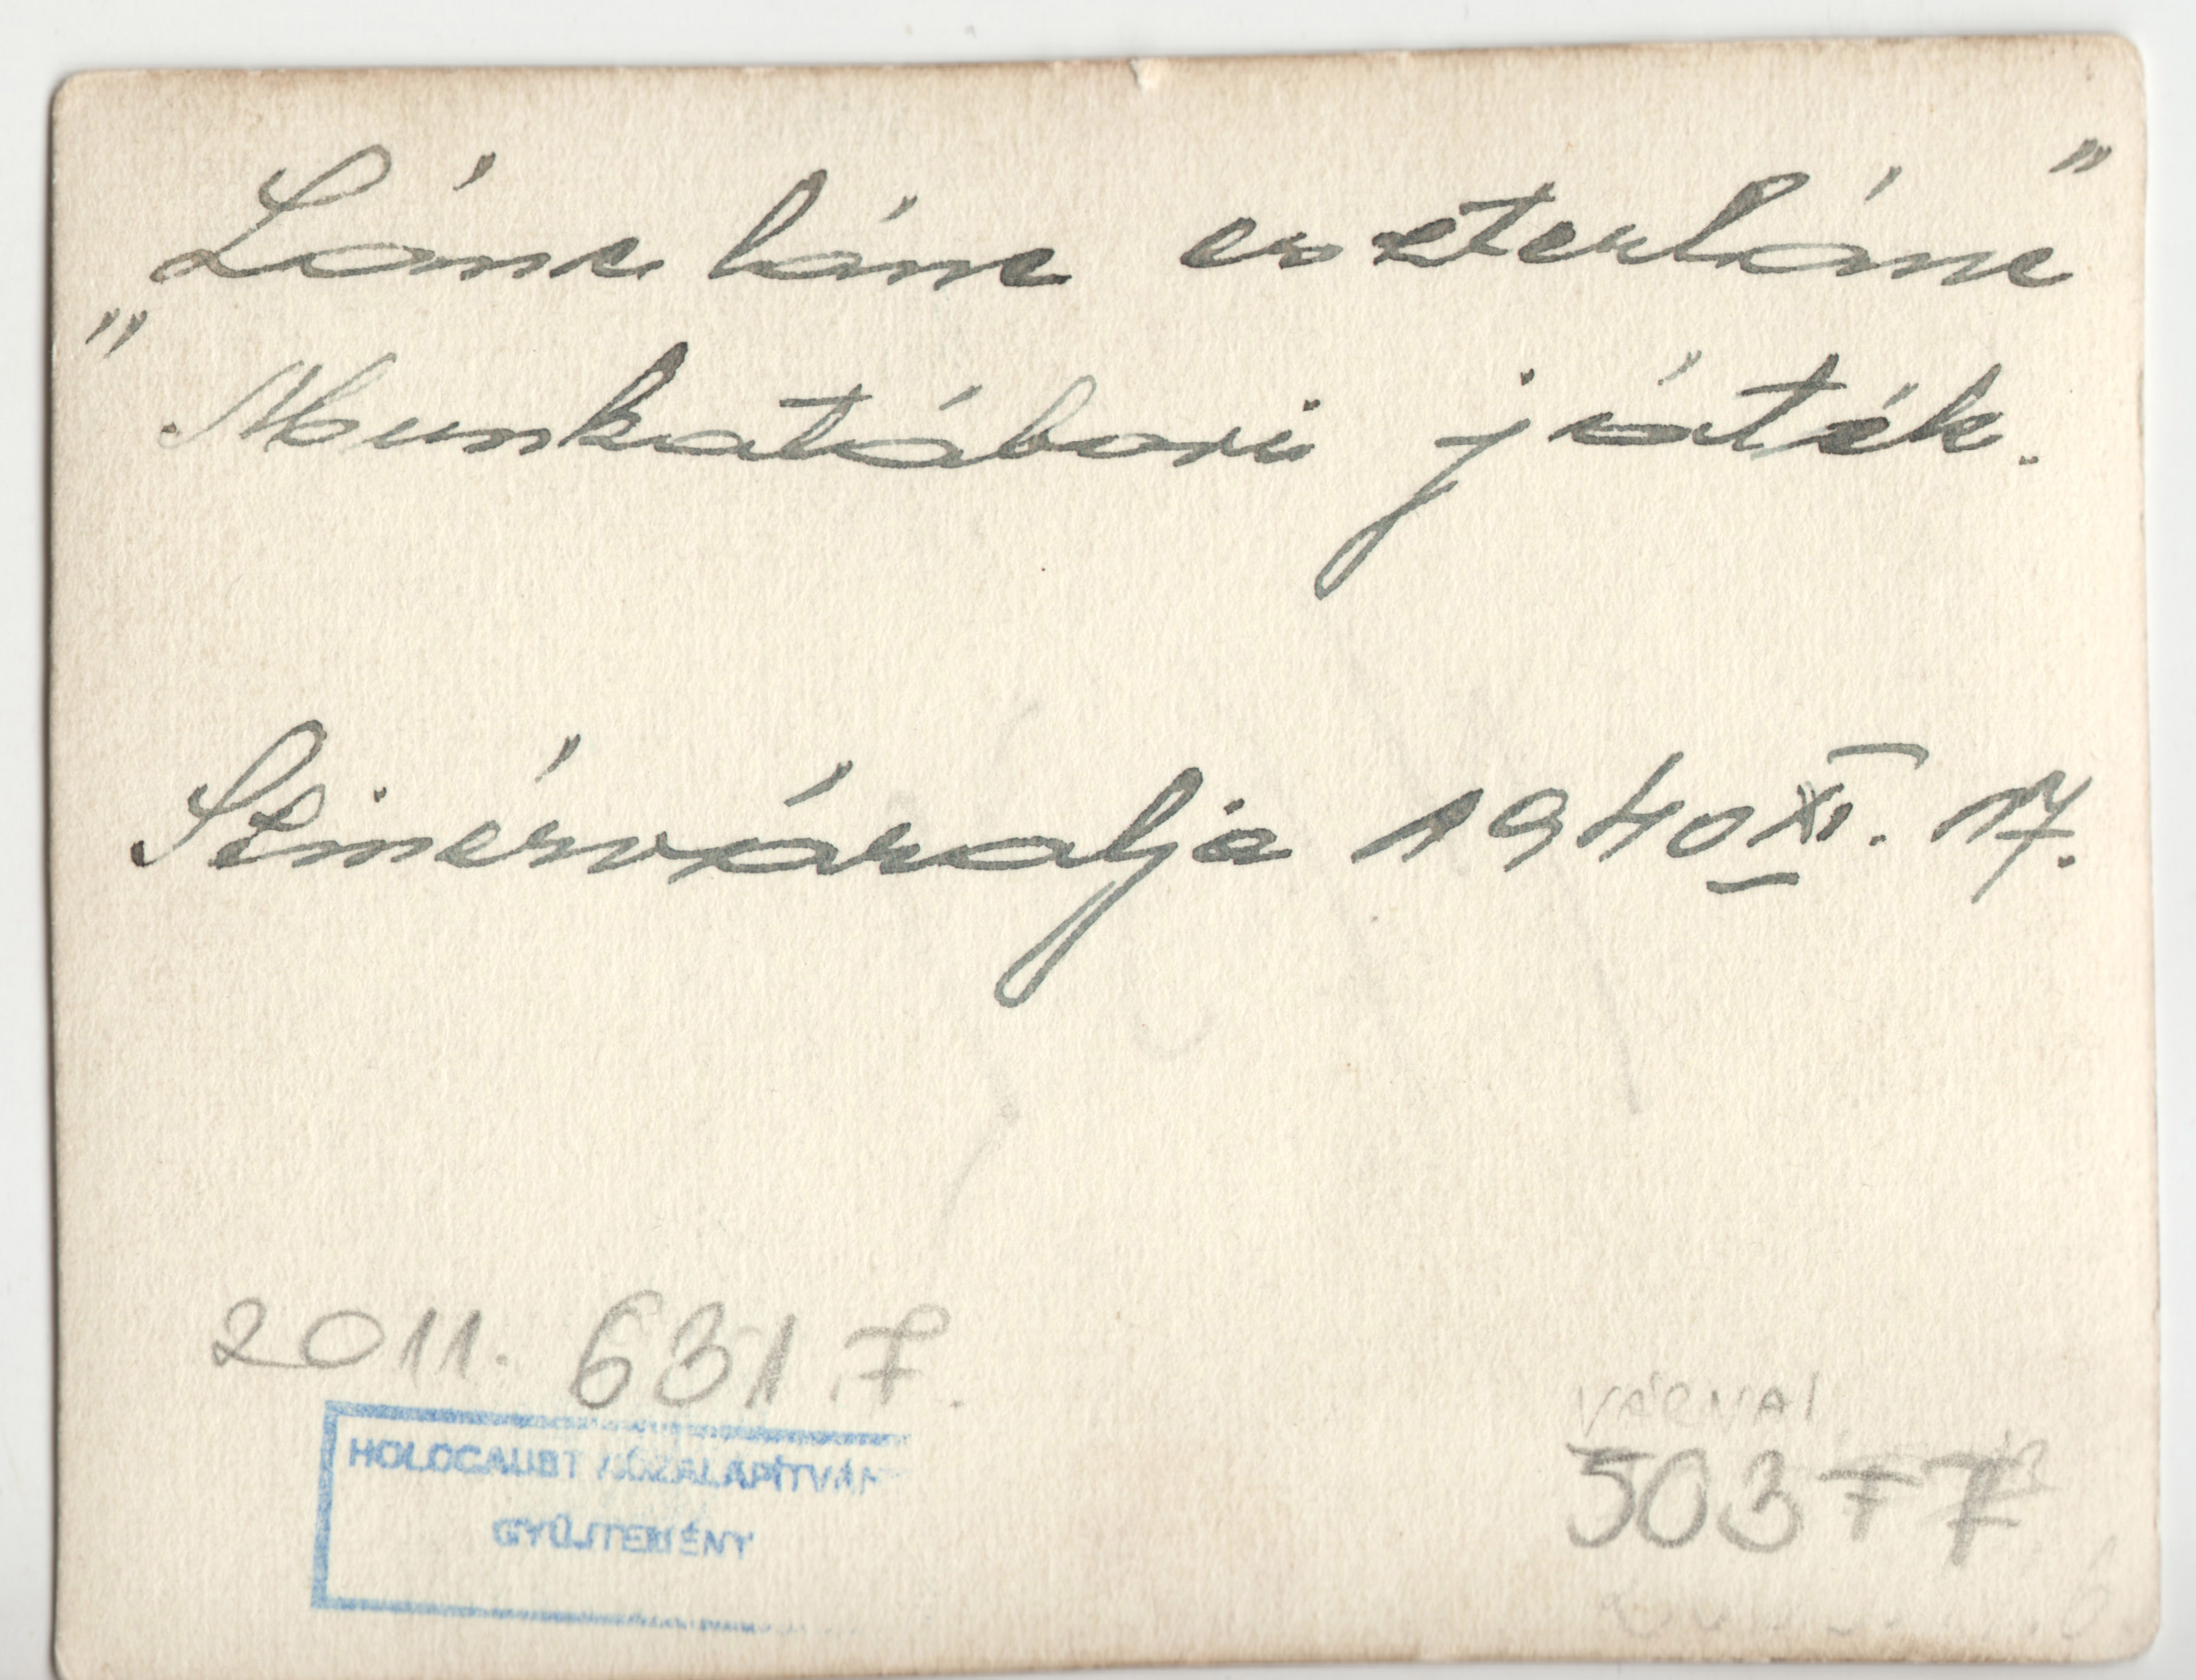 „Lánc lánc eszterlánc”
Munkatábori játék.
Szinérváralja 1940 XI. 17.
2011. 631.7.
HOLOCAUST KÖZALAPÍTVÁN
GYŰJTEMÉNY
VÁRNAI
50377